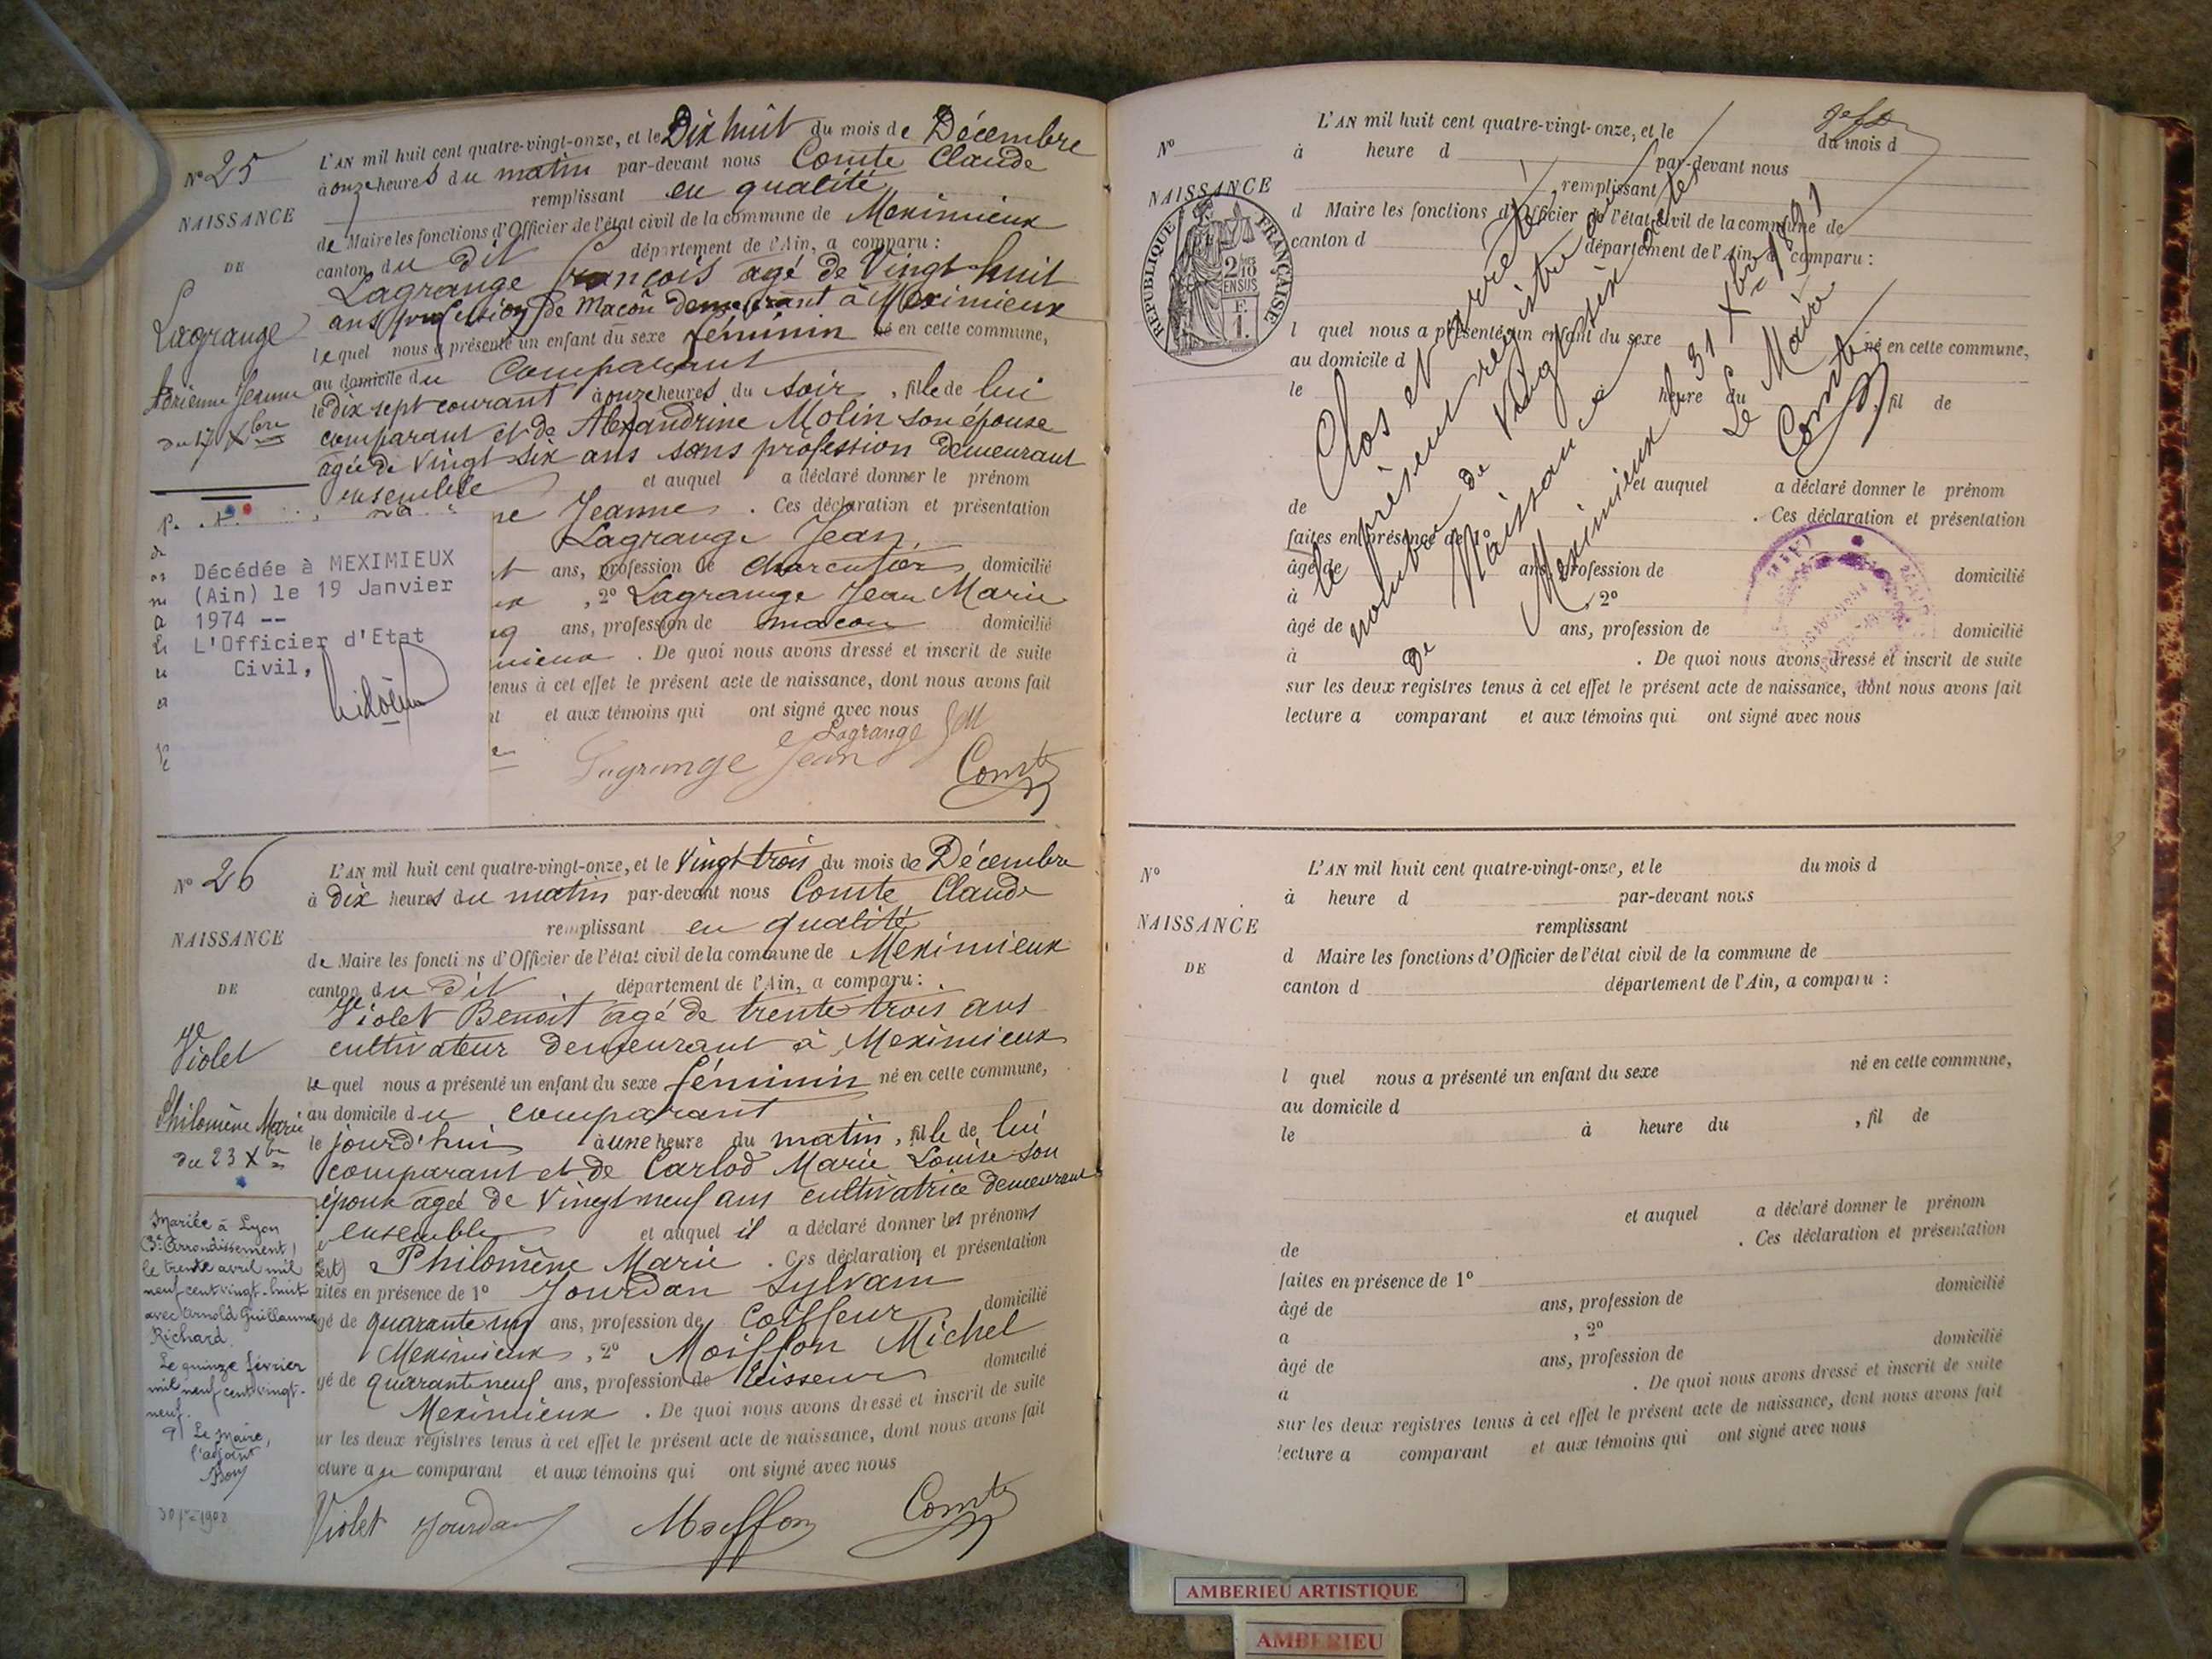 N° 25
NAISSANCE
DE
Lagrange
Adrienne Jeanne
du 17 Xbre
L'AN mil huit cent quatre-vingt-onze, et le Dix huit du mois de Décembre
à onze heures du matin par-devant nous Comte Claude
remplissant en qualité
de Maire les fonctions d'Officier de l'état civil de la commune de Meximieux
canton du dit département de l'Ain, a comparu :
Lagrange françois agé de Vingt huit
ans profession de Macon demeurant à Meximieux
lequel nous a présenté un enfant du sexe féminin né en cette commune,
au domicile du Comparant
le dix sept courant à onze heures du soir, fille de lui
comparant et de Alexandrine Molin son épouse
agée de Vingt six ans sans profession demeurant
ensemble et auquel a déclaré donner le prénom
ne Jeanne . Ces déclaration et présentation
Lagrange Jean
ans, profession de charcutier domicilié
, 2° Lagrange Jean Marie
ans, profession de macon domicilié
mieux . De quoi nous avons dressé et inscrit de suite
tenus à cet effet le présent acte de naissance, dont nous avons fait
et aux témoins qui ont signé avec nous
Lagrange JM
Lagrange Jean Comte
Décédée à MEXIMIEUX
(Ain) le 19 Janvier
1974 --
L'Officier d'Etat
Civil,
N° 26
NAISSANCE
DE
Violet
Philomène Marie
du 23 Xbre
L'AN mil huit cent quatre-vingt-onze, et le Vingt trois du mois de Décembre
à dix heures du matin par-devant nous Comte Claude
remplissant en qualité
de Maire les fonctions d'Officier de l'état civil de la commune de Meximieux
canton du dit département de l'Ain, a comparu :
Violet Benoit agé de trente trois ans
cultivateur demeurant à Meximieux
lequel nous a présenté un enfant du sexe féminin né en cette commune,
au domicile du comparant
le jourd'hui à une heure du matin, fille de lui
comparant et de Carlod Marie Louise son
épouse agée de Vingt neuf ans cultivatrice demeurant
ensemble et auquel il a déclaré donner les prénoms
Philomène Marie . Ces déclaration et présentation
aites en présence de 1° Jourdan Sylvain
gé de quarante un ans, profession de Coiffeur domicilié
Meximieux , 2° Moiffon Michel
gé de quarante neuf ans, profession de tisseur domicilié
Meximieux . De quoi nous avons dressé et inscrit de suite
ur les deux registres tenus à cet effet le présent acte de naissance, dont nous avons fait
cture au comparant et aux témoins qui ont signé avec nous
Violet Jourdan Moiffon Comte
Mariée à Lyon
(3e Arrondissement)
le trente avril mil
neuf cent vingt-huit
avec Arnold Guillaume
Richard.
Le quinze février
mil neuf cent vingt-
neuf.
Le Maire,
l'adjoint
N°
NAISSANCE
REPUBLIQUE FRANÇAISE
L'AN mil huit cent quatre-vingt-onze, et le du mois d
à heure d par-devant nous
remplissant
d Maire les fonctions d'Officier de l'état civil de la commune de
canton d département de l'Ain, a comparu :
l quel nous a présenté un enfant du sexe né en cette commune,
au domicile d
le heure du , fil de
et auquel a déclaré donner le prénom
de . Ces déclaration et présentation
faites en présence de 1°
âgé de ans, profession de domicilié
à , 2°
âgé de ans, profession de domicilié
à . De quoi nous avons dressé et inscrit de suite
sur les deux registres tenus à cet effet le présent acte de naissance, dont nous avons fait
lecture a comparant et aux témoins qui ont signé avec nous
Clos et arrêté
le présent registre au
nombre de Vingt six actes
de Naissance
Meximieux le 31 Xbre 1891
Le Maire
Comte
N°
NAISSANCE
DE
L'AN mil huit cent quatre-vingt-onze, et le du mois d
à heure d par-devant nous
remplissant
d Maire les fonctions d'Officier de l'état civil de la commune de
canton d département de l'Ain, a comparu :
l quel nous a présenté un enfant du sexe né en cette commune,
au domicile d
le à heure du , fil de
et auquel a déclaré donner le prénom
de . Ces déclaration et présentation
faites en présence de 1°
âgé de ans, profession de domicilié
a , 2°
âgé de ans, profession de domicilié
a . De quoi nous avons dressé et inscrit de suite
sur les deux registres tenus à cet effet le présent acte de naissance, dont nous avons fait
lecture a comparant et aux témoins qui ont signé avec nous
AMBERIEU ARTISTIQUE
AMBERIEU